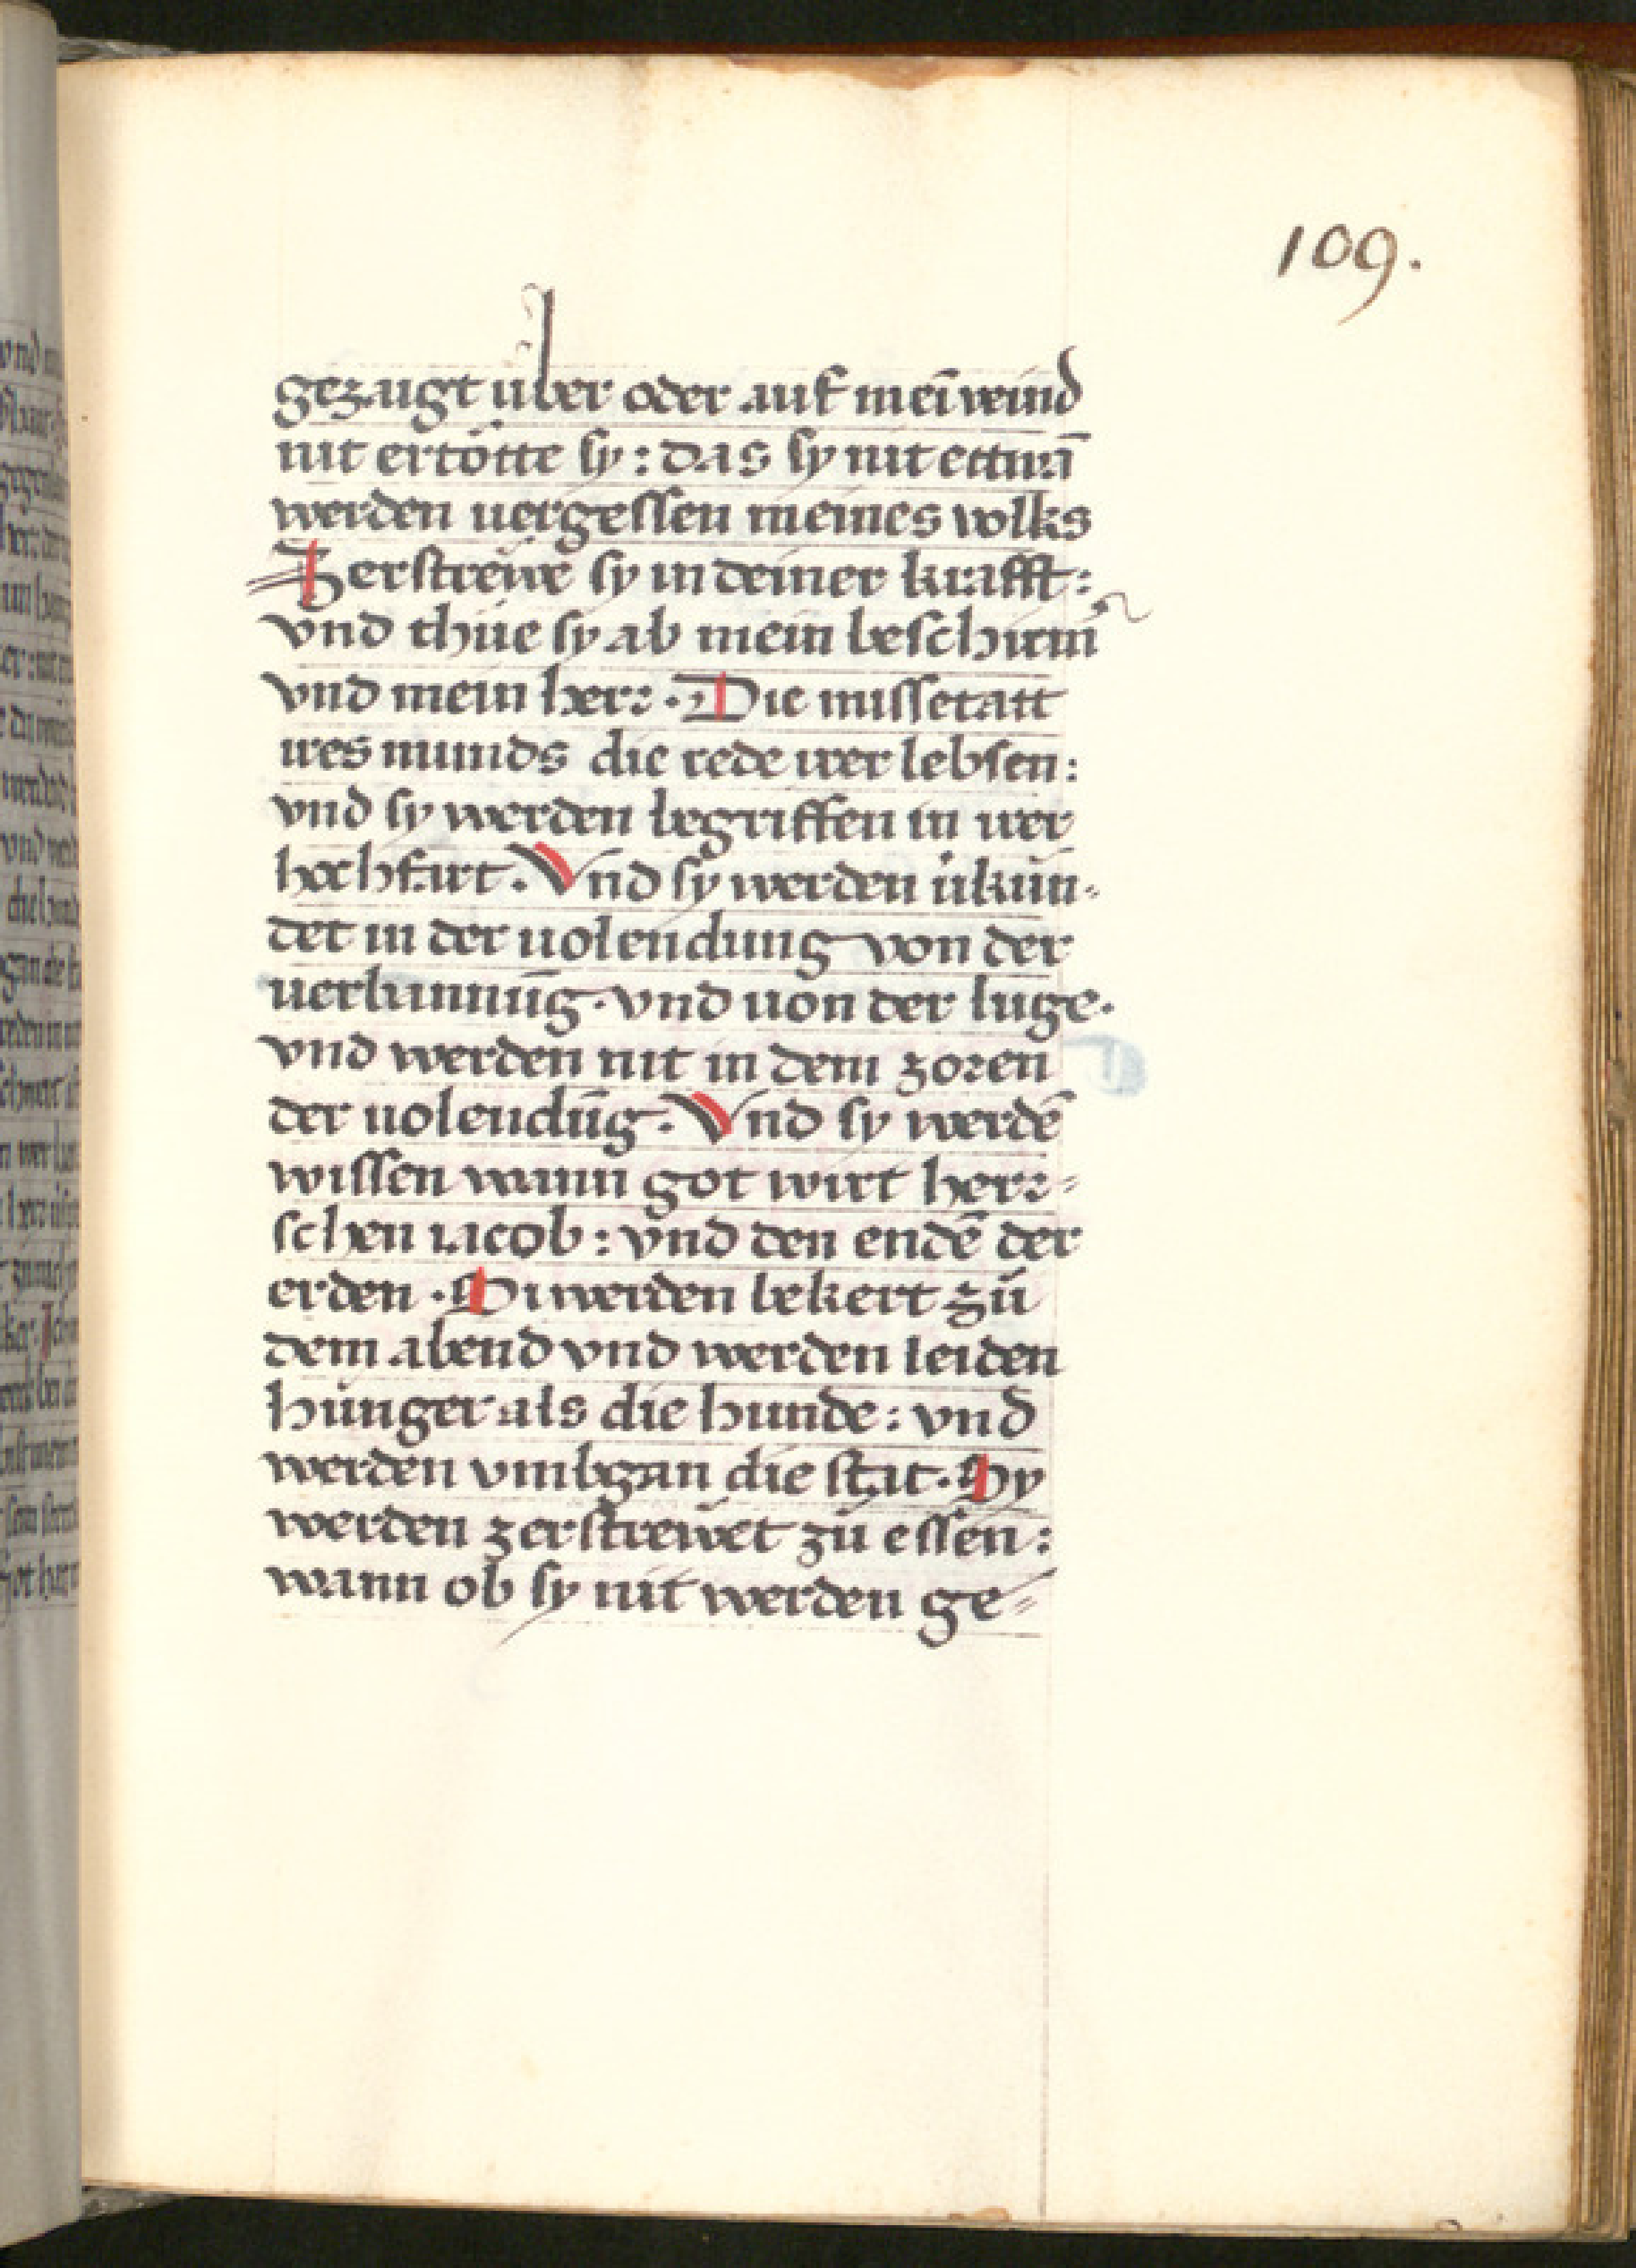 109.
gezaigt über oder auf mei͂ veind
nit ertötte sy : das sy nit ettwa͂
werden uergessen meines volks
Zerstreüe sy in deiner krafft :
vnd thüe sy ab mein beschirm͂
vnd mein herr · Die missetatt
ires munds die rede irer lebsen :
vnd sy werden begriffen in irer
hochfart · Vnd sy werden ükün-
det in der uolendung von der
uerbannu͂g · vnd uon der luge ·
vnd werden nit in dem zoren
der uolendu͂g · Vnd sy werde͂
wissen wann got wirt herr-
schen iacob : vnd den ende͂ der
erden · Si werden bekert zü
dem abend vnd werden leiden
hünger als die hunde : vnd
werden vmbgan die stat · Sy
werden zerstrewet zü essen :
wann ob sy nit werden ge-